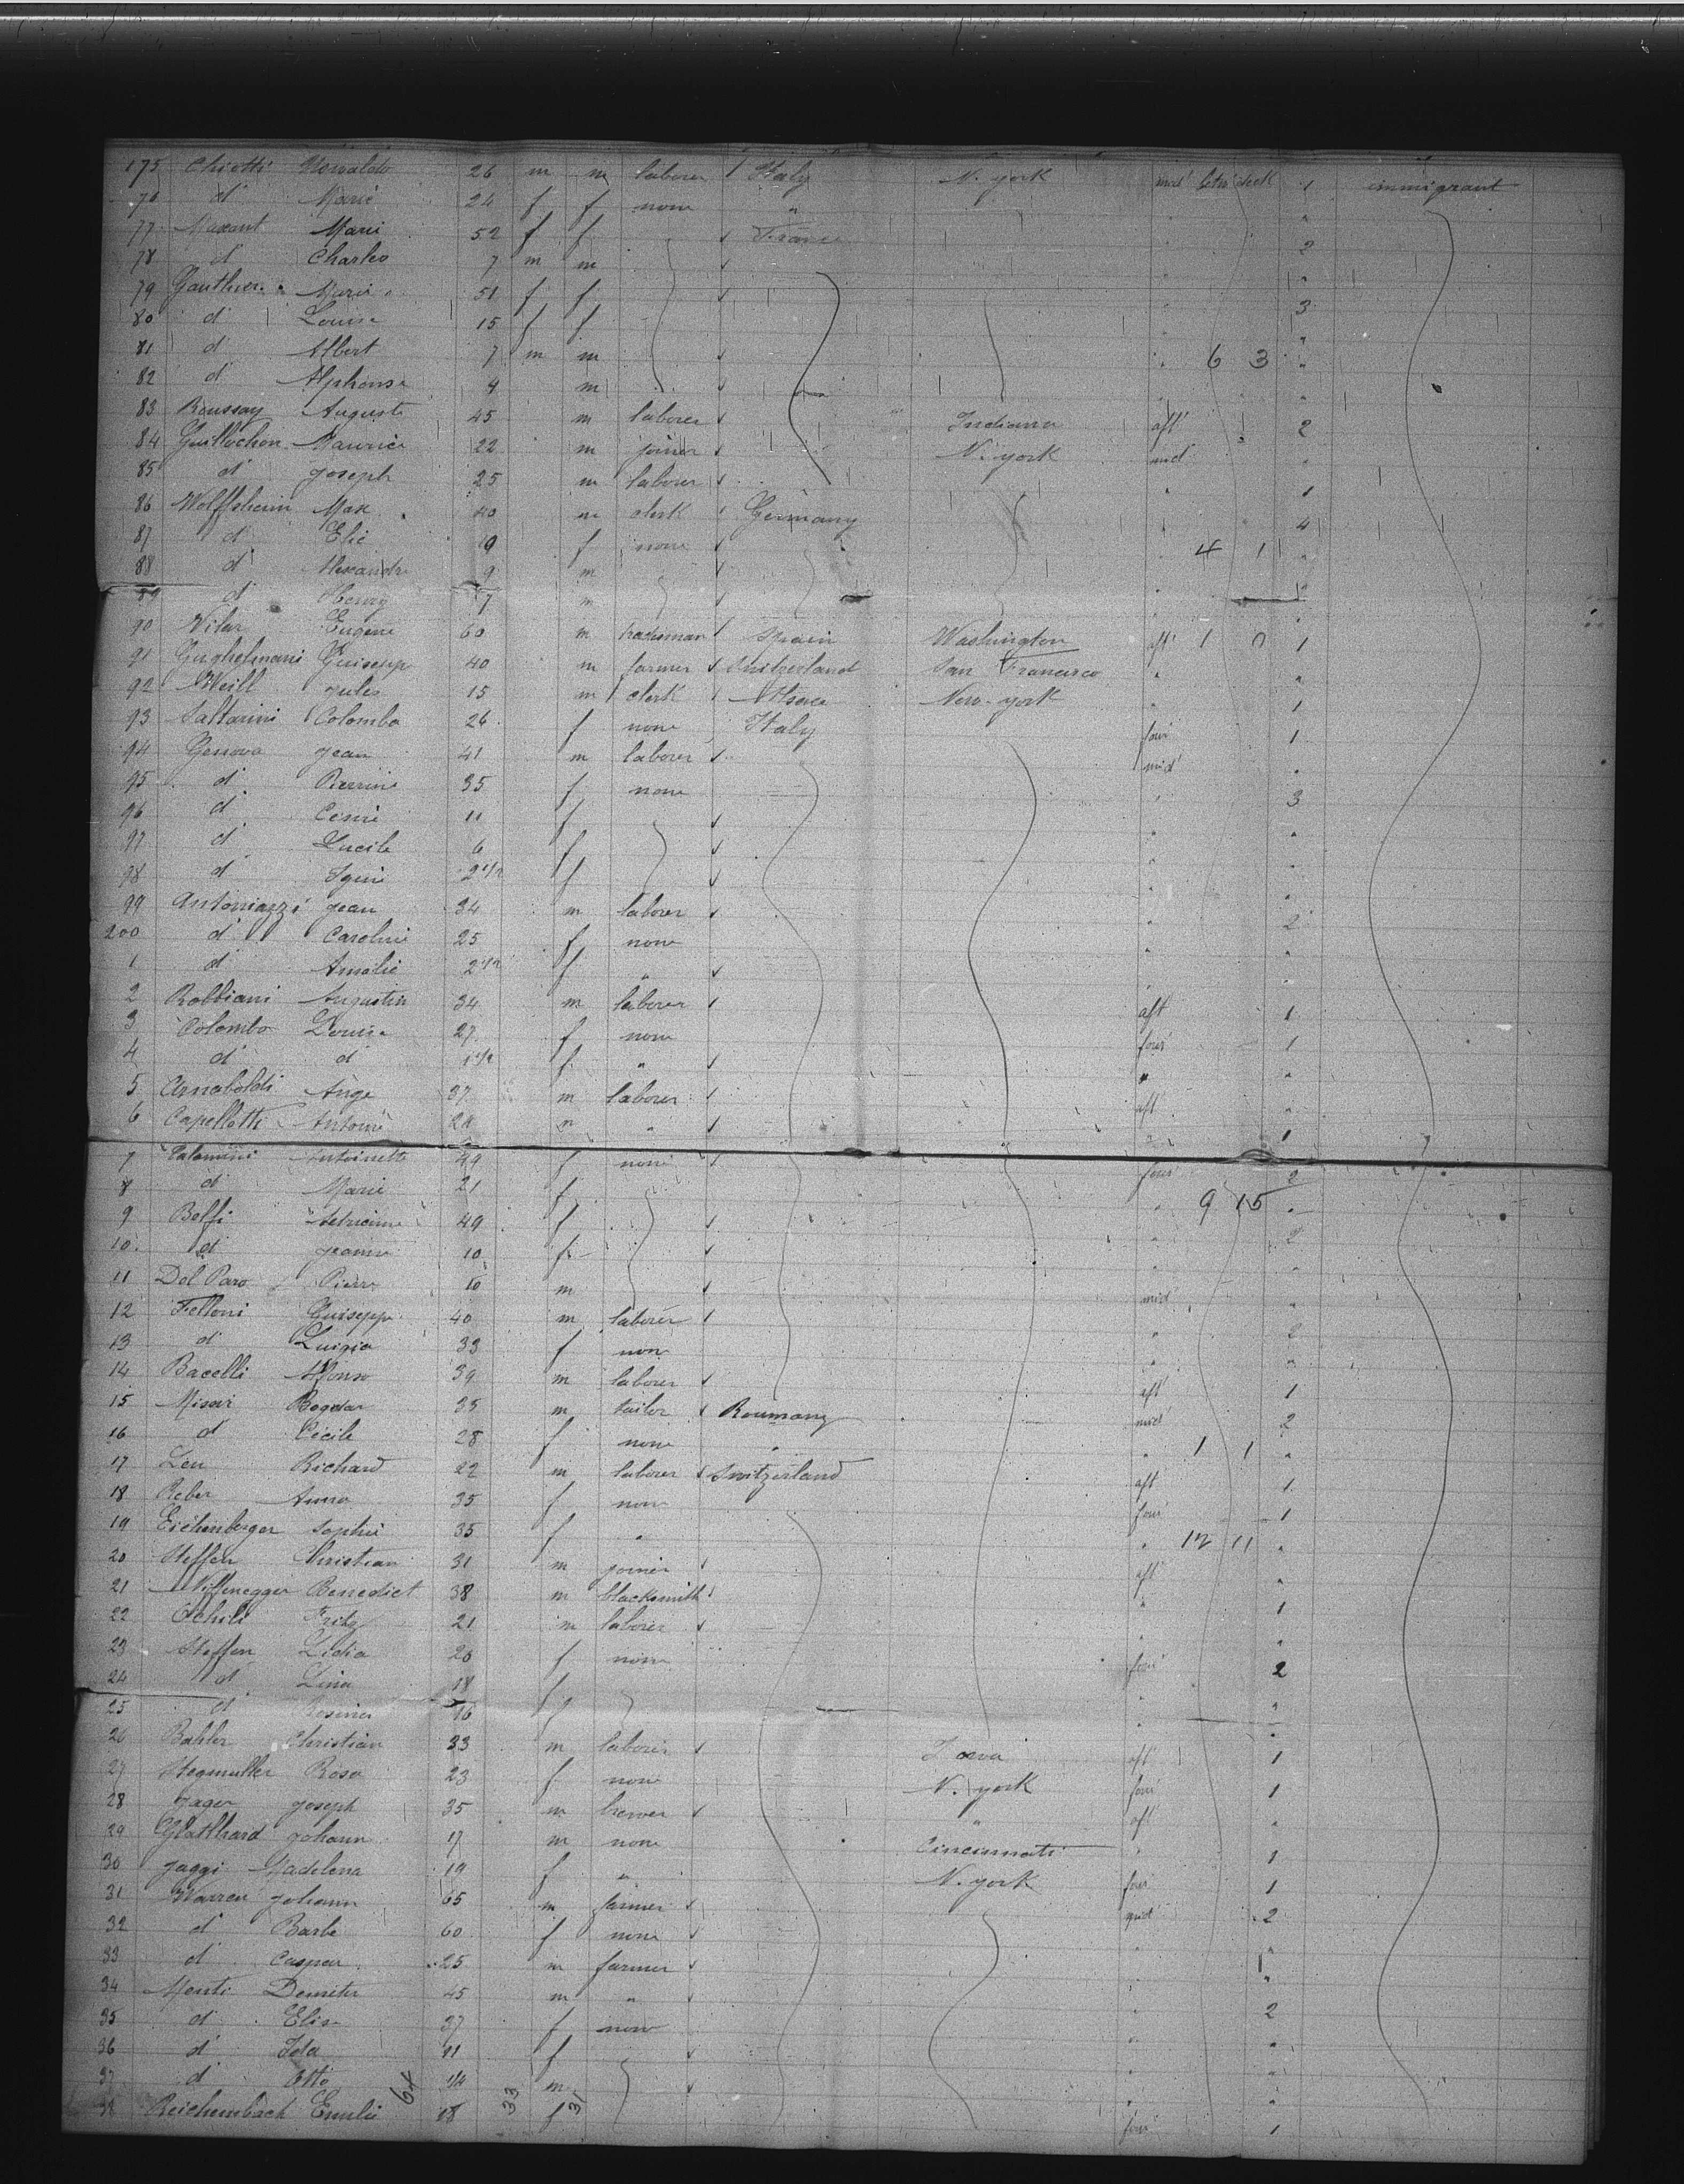 175 Chiotti 26 m m laborer Italy N. york mid' betw' deck 1 immigrant
76 d' Marie 24 f f none "
77 Maxant Marie 52 f f France 2
78 d' Charles 7 m m "
79 Gauthier Marie 51 f f 3
80 d' Louise 15 f f "
81 d' Albert 7 m m " 6 3 "
82 d' Alphonse 4 m "
83 Roussay Auguste 45 m laborer Indiana aft' 2
84 Guillochon Maurice 22 m joiner N. york mid' "
85 d' Joseph 25 m laborer " 1
86 Wolffsheim Max 40 m clerk Germany " 4
87 d' 9 f none 4 1 "
88 d' Alexandre 9 m "
89 d' Henry 7 m "
90 Vilar Eugene 60 m tradesman Spain Washington aft' 1 0 1
91 Guglielmani Guisepp 40 m farmer Switzerland San Francisco " "
92 Weill Jules 15 m clerk Alsace New-york " 1
93 Saltarini Colomba 26 f none Italy 1
94 Genova Jean 41 m laborer mid' "
95 d' Pierrine 35 f none " 3
96 d' 11 f " "
97 d' Lucile 6 f " "
98 d' 2 1/2 f " "
99 Antoniazzi Jean 34 m laborer " 2
200 d' Caroline 25 f none " "
1 d' Amalie 2 1/2 f " " "
2 Robbiani Augustin 34 m laborer aft 1
3 Colombo Louise 27 f none 1
4 d' d' 1 1/2 f " " "
5 Arnaboldi Ange 37 m laborer aft' "
6 Capelletti Antoine 24 m " " 1
7 Antoinette 49 f none 2
8 d' Marie 21 f " 9 15 "
9 Boffi 49 f " 2
10 d' Jeanne 10 f " "
11 Del Paro Pierre 10 m mid' "
12 Felloni Guisepp 40 m laborer " 2
13 d' Luigia 33 f none " "
14 Bacelli Alfonso 39 m laborer aft' 1
15 Bogdar 35 m tailor Roumany mid' 2
16 d' Cécile 28 f none " " 1 1 "
17 Leu Richard 22 m laborer Switzerland aft 1
18 Reber Anna 35 f none 1
19 Eichenberger Sophie 35 f " " 12 11 "
20 Steffen Christian 31 m joiner aft' "
21 Niffenegger Benedict 38 m blacksmith " 1
22 Fritz 21 m laborer " "
23 Steffen Lidia 20 f none 2
24 d' Lina 18 f " "
25 d' Rosina 16 f " "
26 Bahler Christian 33 m laborer Iowa aft' 1
27 Stegmuller Rosa 23 f none N. york 1
28 Jager Joseph 35 m brewer " aft' "
29 Glatthard Johann 17 m none Cincinnati " 1
30 Jaggi Madelena 19 f " N. york 1
31 Johann 65 m farmer mid' 2
32 d' Barbe 60 f none " "
33 d' Caspar 25 m farmer " 1 "
34 Menti Demeter 45 m " " 2
35 d' Elise 37 f none " "
36 d' Ida 11 f " "
37 d' Otto 1/4 m " "
38 Reichenbach Emilie 18 f 1
64 33 31